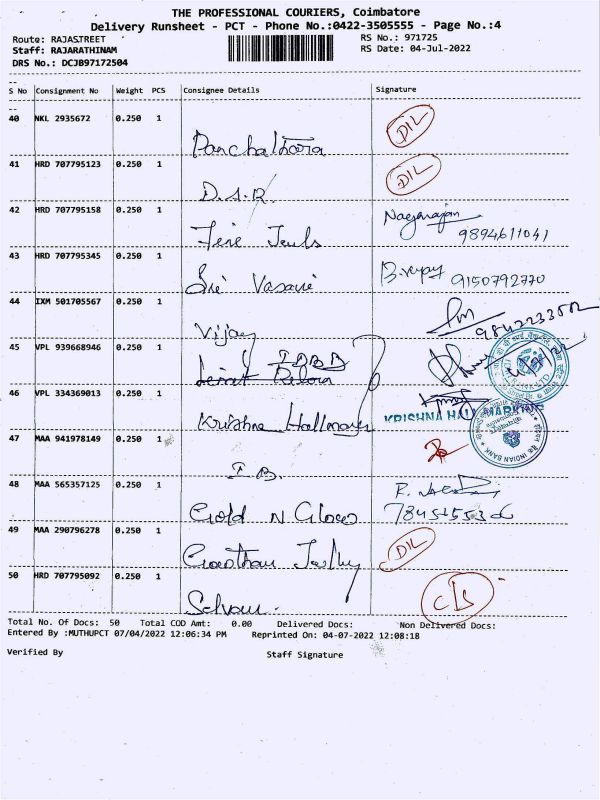 THE PROFESSIONAL COURIERS, Coimbatore
Delivery Runsheet - PCT - Phone No.:0422-3505555 - Page No.:4
Route: RAJASTREET RS No.: 971725
Staff: RAJARATHINAM RS Date: 04-Jul-2022
DRS No.: DCJB97172504
S No Consignment No Weight PCS Consignee Details Signature
40 NKL 2935672 0.250 1 DIL
41 HRD 707795123 0.250 1 D.S.R. DIL
42 HRD 707795158 0.250 1 Nagarajan
9894611041
43 HRD 707795345 0.250 1 Sri Vasavi 9150792770
44 IXM 501705567 0.250 1 Vijay
45 VPL 939668946 0.250 1
46 VPL 334369013 0.250 1 Krishna Hallmark KRISHNA HALLMARKING
47 MAA 941978149 0.250 1 I.B. INDIAN BANK
48 MAA 565357125 0.250 1 Gold N Glow
49 MAA 290796278 0.250 1 DIL
50 HRD 707795092 0.250 1 Selvam
Total No. Of Docs: 50 Total COD Amt: 0.00 Delivered Docs: Non Delivered Docs:
Entered By :MUTHUPCT 07/04/2022 12:06:34 PM Reprinted On: 04-07-2022 12:08:18
Verified By Staff Signature